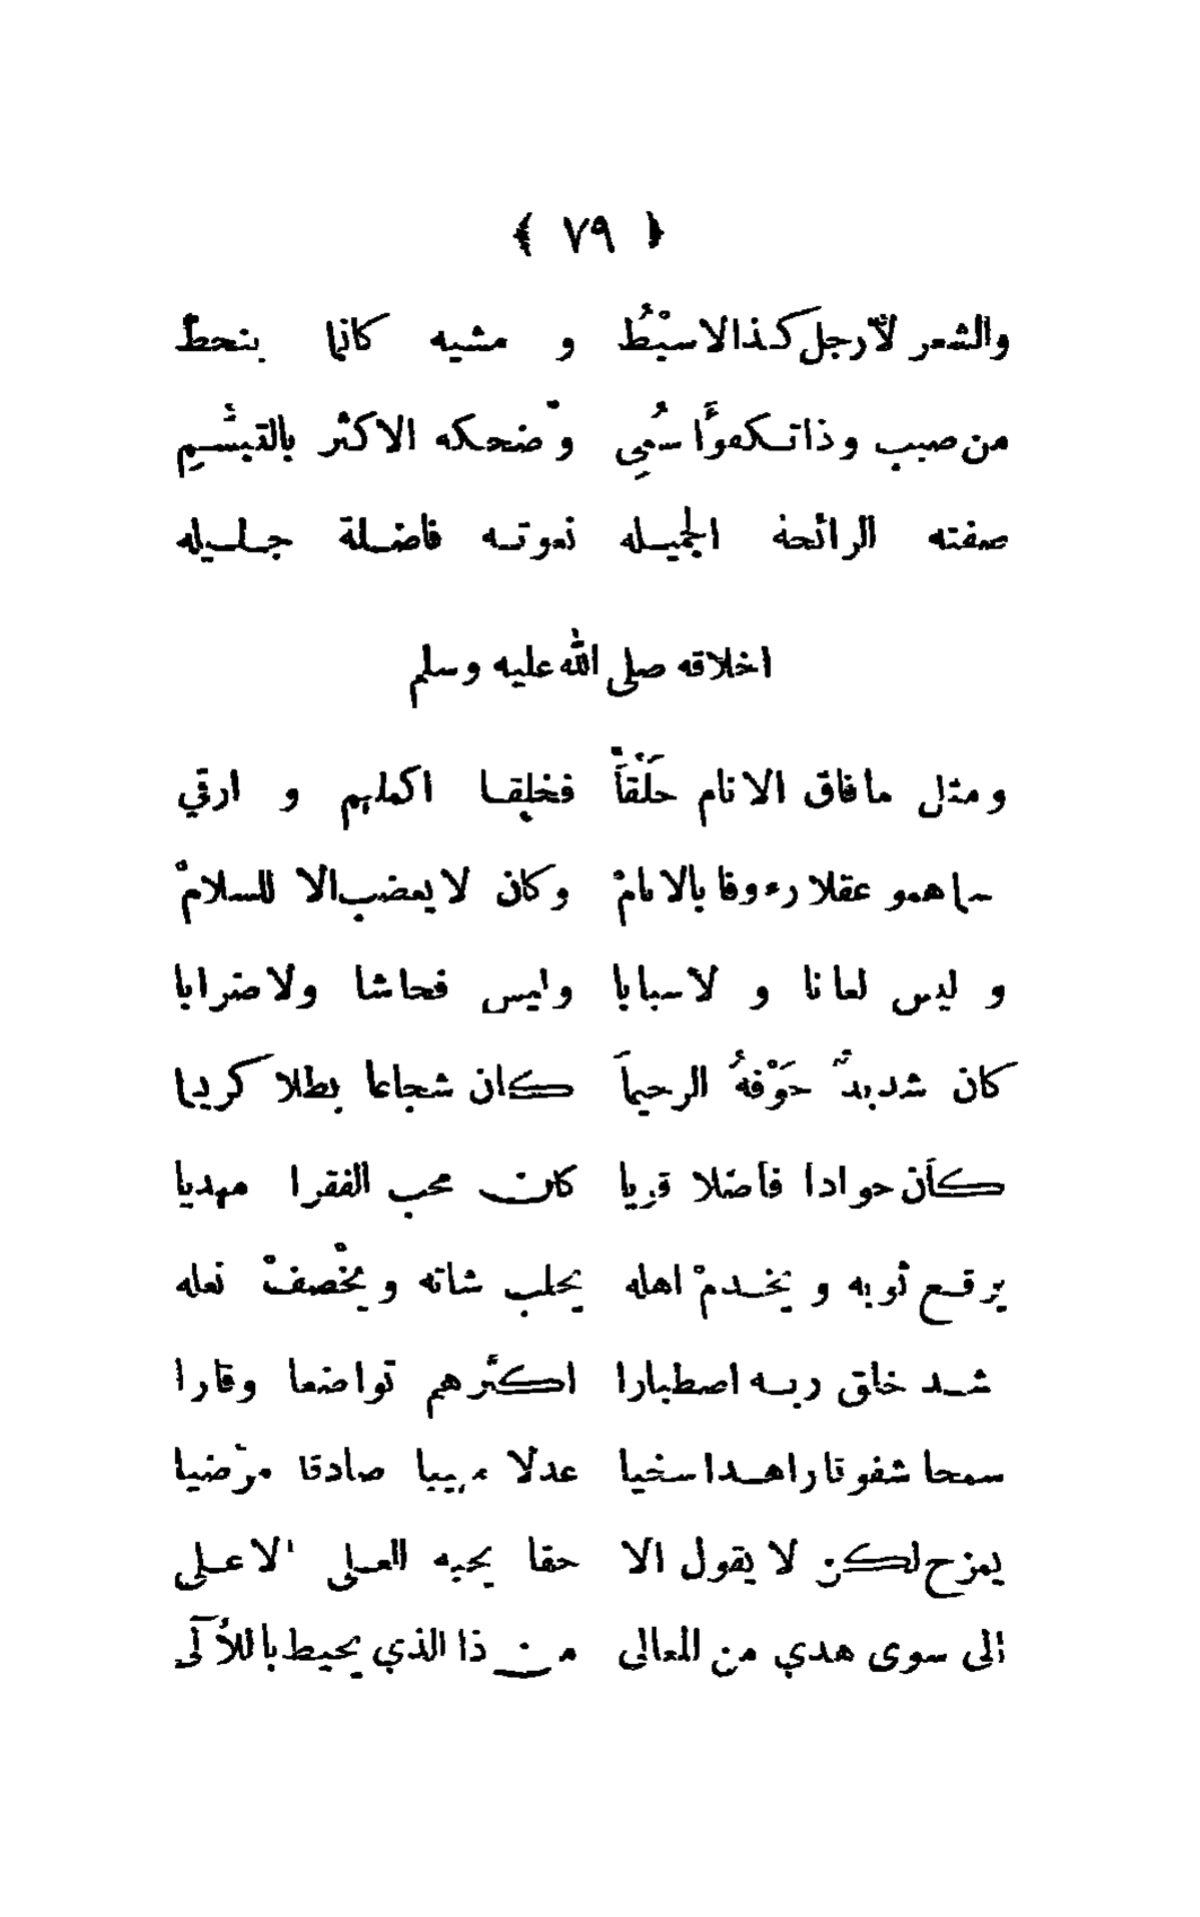 ﴿ ٧٩ ﴾
والشعر لا رجل كذا لا سبْطُ و مشيه كانما ينحطّ
من صبب وذا تكفوًا سُمِي وْضحكه الاكثر بالتبسُّمِ
صفته الرائحة الجميله نعوته فاضلة جليله
اخلاقه صلى الله عليه وسلم
ومثل ما فاق الانام خَلْقاً فخلقا اكملهم و ارقي
سماهمو عقلا رءوفا بالانامْ وكان لا يعضب الا للسلامْ
و ليس لعانا و لا سبابا وليس فحاشا ولا ضرابا
كان شديدٌ خَوْفهُ الرحيماَ كان شجاعا بطلا كريما
كان جوادا فاضلا قويا كان محب الفقرا مهديا
يرقع ثوبه و يخدمْ اهله يحلب شاته ويخْصفْ نعله
شد خلق ربه اصطبارا اكثرهم تواضعا وقارا
سمحا شفوقا زاهدا سخيا عدلا مهيبا صادقا مرْضيا
يمزح لكن لا يقول الا حقا يحبه العلى الاعلى
الى سوى هدي من المعالى من ذا الذي يحيط باللآلى